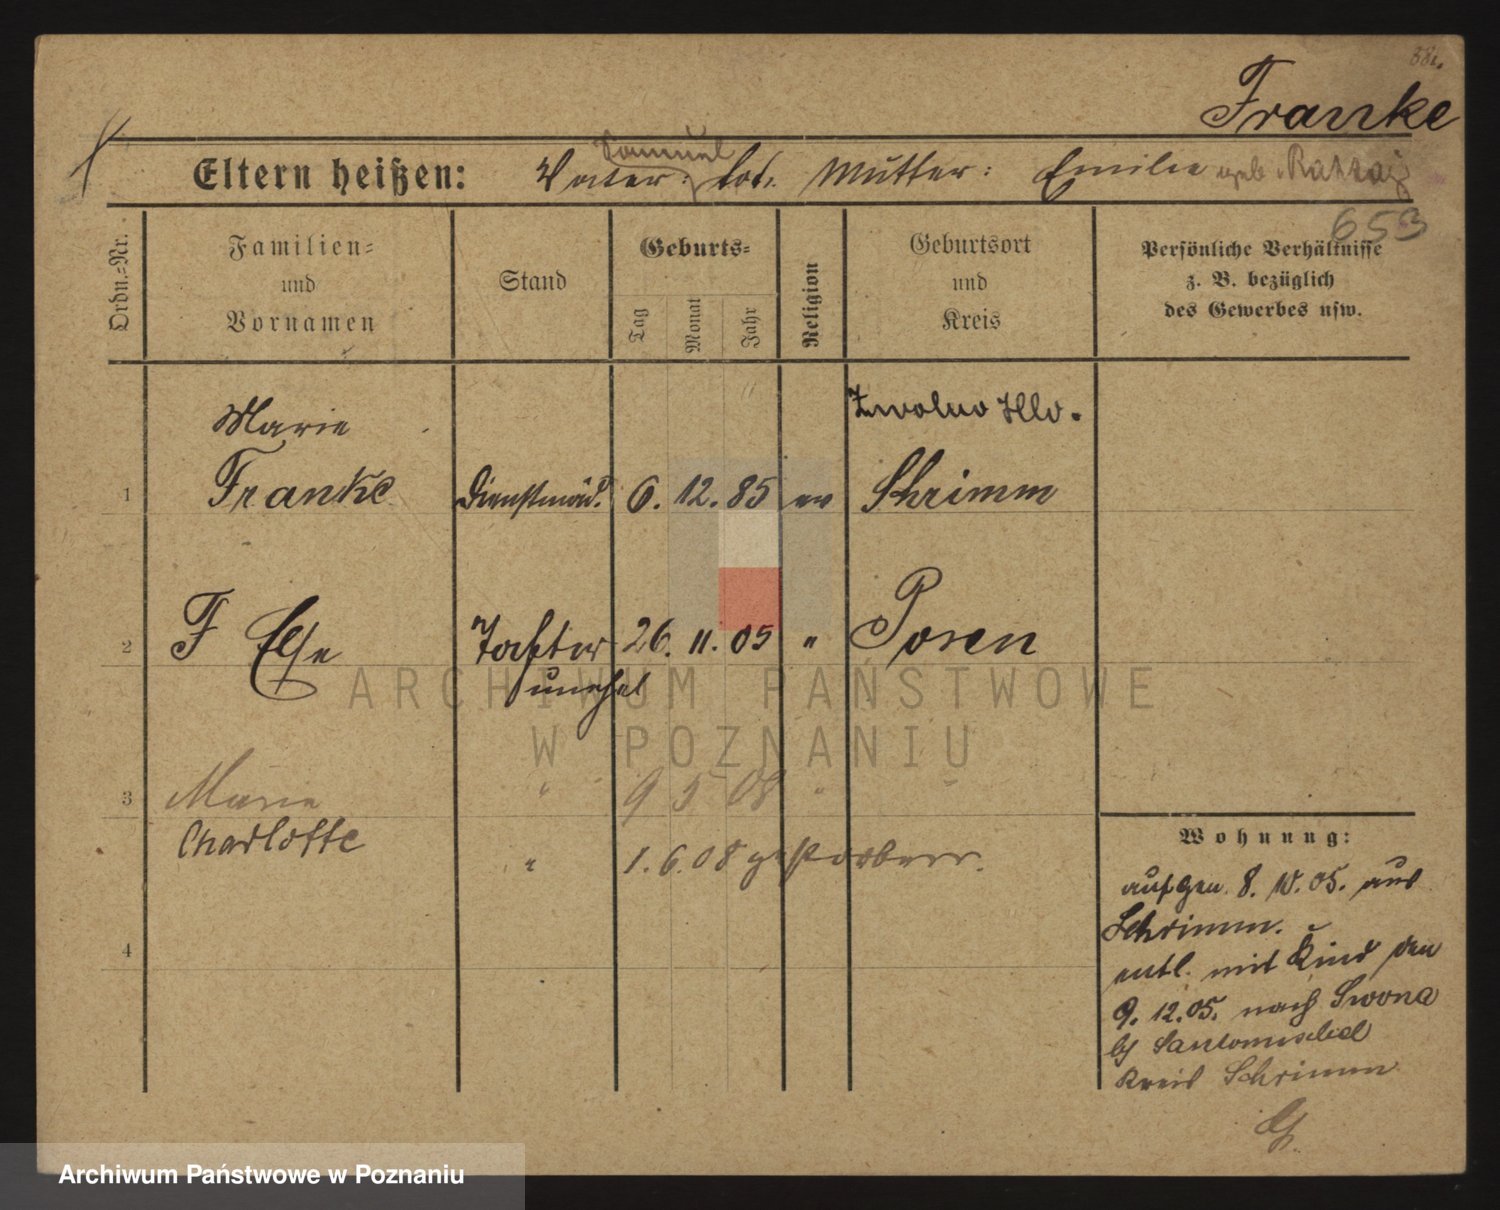 Franke
Samuel
Eltern heißen: Vater: tot. Mutter: Emilie geb.
653
Ordn.=Nr.
Familien=
und
Vornamen
Stand
Geburts=
Tag
Monat
Jahr
Religion
Geburtsort
und
Kreis
Persönliche Verhältnisse
z. B. bezüglich
des Gewerbes usw.
Marie
1 Franke Dienstmäd. 6. 12. 85 ev Schrimm
2 F Else Tochter 26. 11. 05 " Posen
unehel
3 Marie " 9 5 08 "
Charlotte
" 1. 6. 08 gestorben.
4
Wohnung:
aufgen. 8. 10. 05. aus
Schrimm.
entl. mit Kind den
9. 12. 05. nach
b/ Santomischel
Kreis Schrimm
ARCHIWUM PAŃSTWOWE
W POZNANIU
Archiwum Państwowe w Poznaniu